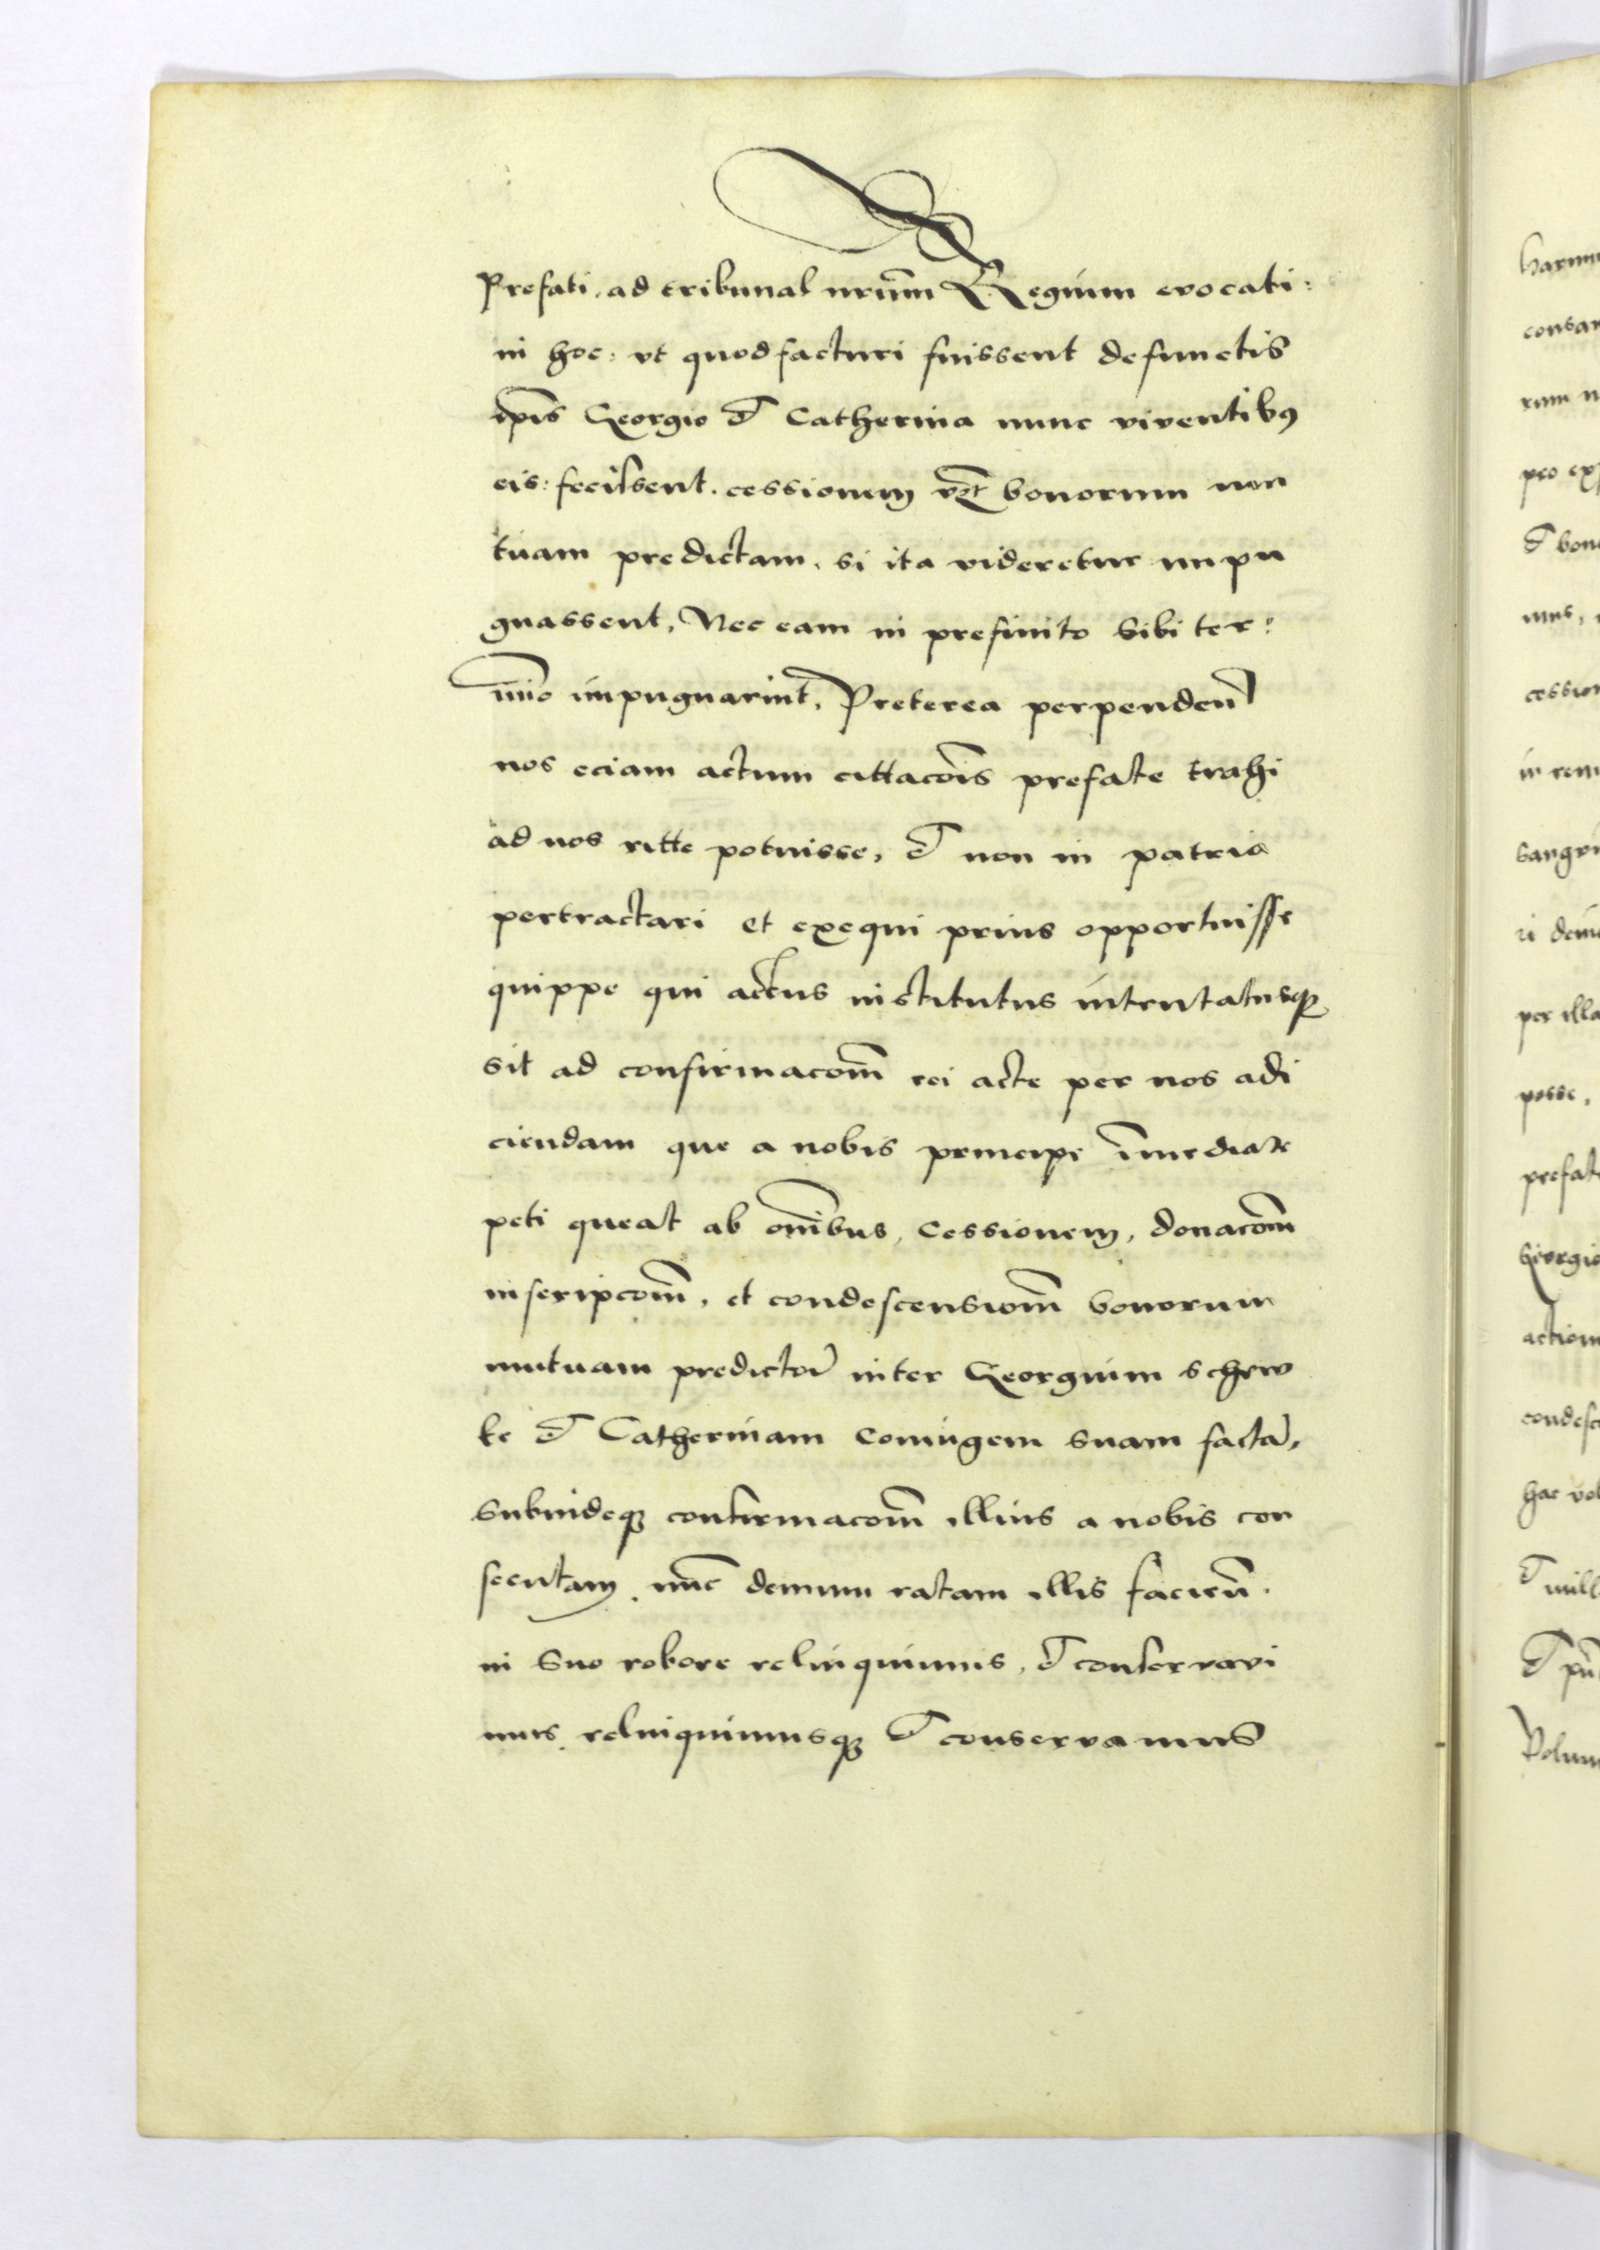 Prefati. ad tribunal nrūm Regium evocati:
in hoc: vt quod facturi fuissent defunctis
ip̄is Georgio et Catherina nunc viventibꝰ
eis: fecissent. cessionem bonorum mu
tuam predictam. si ita videretur impu
gnassent, Nec eam in prefinito sibi ter:
mīo impugnarint, Preterea perpendeñ
nos eciam actum cittacōis prefate trahi
ad nos ritte potuisse, et non in patria
pertractari et exequi prius opportuisse
quippe qui actus institutus intentatusqꝫ
sit ad confirmacōm rei acte per nos adi
ciendam que a nobis principe īmediate
peti queat ab om̄ibus, Cessionem, donacōm
inscripcōm, et condescensiōm bonorum
mutuam predictā inter Georgium schew
ke et Catherinam Coniugem suam factā,
Subindeqꝫ confirmacōm illius a nobis con
secutam. nūc demum ratam illis facieñ.
in suo robore relinquimus, et conservavi
mus. relinquimusqꝫ et conservamus
Harum
rum
posse,
Georgio